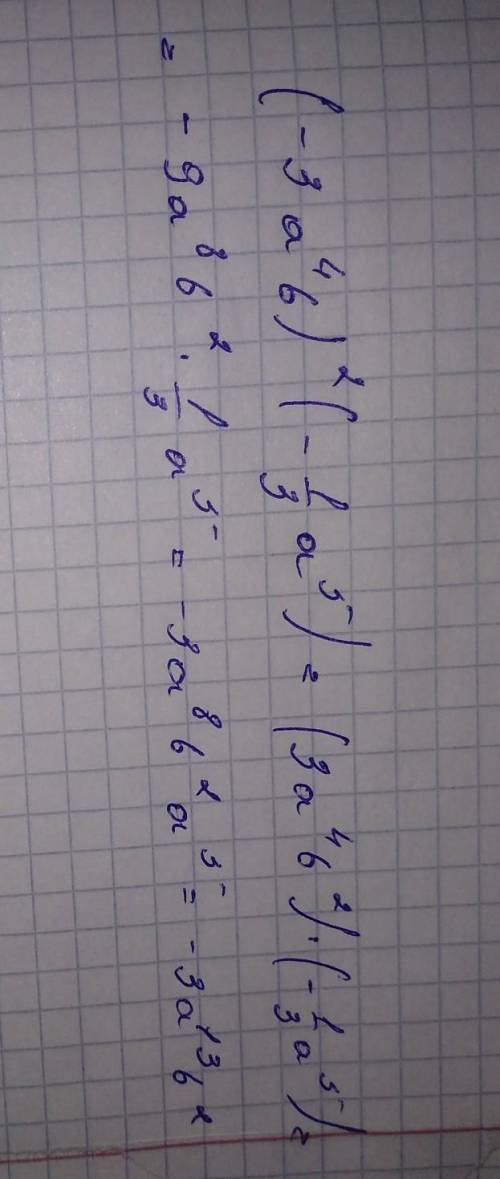 (-3a⁴b)²(-1/3 a⁵) = (3a⁴b²)·(-1/3 a⁵) =
= -9a⁸b² · 1/3 a⁵ = -3a⁸b²a⁵ = -3a¹³b²